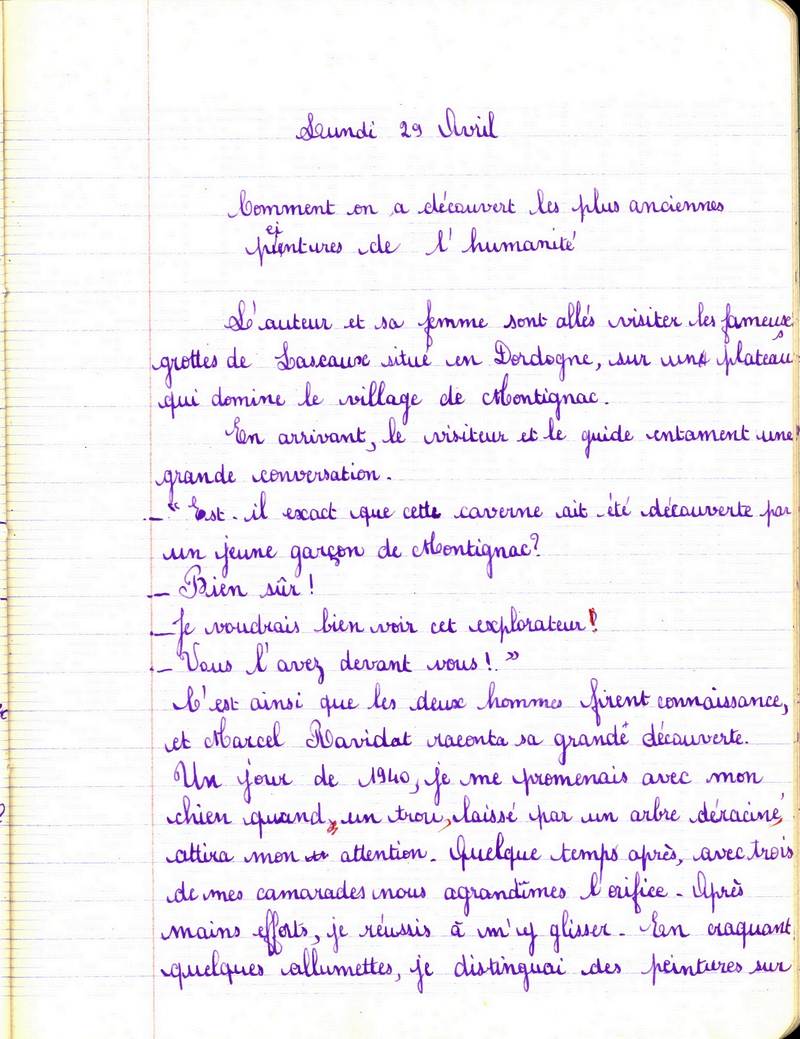 Lundi 29 Avril
Comment on a découvert les plus anciennes
peintures de l'humanité
L'auteur et sa femme sont allés visiter les fameuses
grottes de Lascaux situé en Dordogne, sur un plateau
qui domine le village de Montignac.
En arrivant, le visiteur et le guide entament une
grande conversation.
_ " Est-il exact que cette caverne ait été découverte par
un jeune garçon de Montignac?
_ Bien sûr !
_ Je voudrais bien voir cet explorateur!
_ Vous l'avez devant vous ! "
C'est ainsi que les deux hommes firent connaissance,
et Marcel Ravidat raconta sa grande découverte.
Un jour de 1940, je me promenais avec mon
chien quand, un trou, laissé par un arbre déraciné,
attira mon attention. Quelque temps après, avec trois
de mes camarades nous agrandîmes l'orifice. Après
mains efforts, je réussis à m'y glisser. En craquant
quelques allumettes, je distinguai des peintures sur